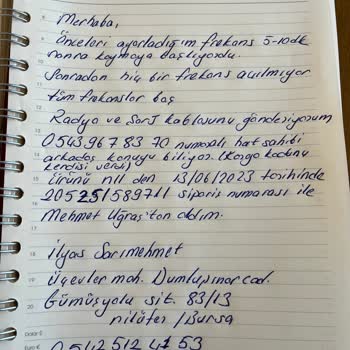 Merhaba,
Önceleri ayarladığım frekans 5-10dk
sonra kaymaya başlıyordu.
Sonradan hiç bir frekans açılmıyor
tüm frekanslar boş
Radyo ve şarj kablosunu gönderiyorum
0543 967 83 70 numaralı hat sahibi
arkadaş konuyu biliyor. (Kargo kodunu
kendisi verdi)
Ürünü n11 den 13/06/2023 tarihinde
205251589711 sipariş numarası ile
Mehmet Uğraş'tan aldım.
İlyas Sarımehmet
Üçevler mah. Dumlupınar cad.
Gümüşyolu sit. 83/13
nilüfer / Bursa
Dolar $
Euro €
0542 512 41 53